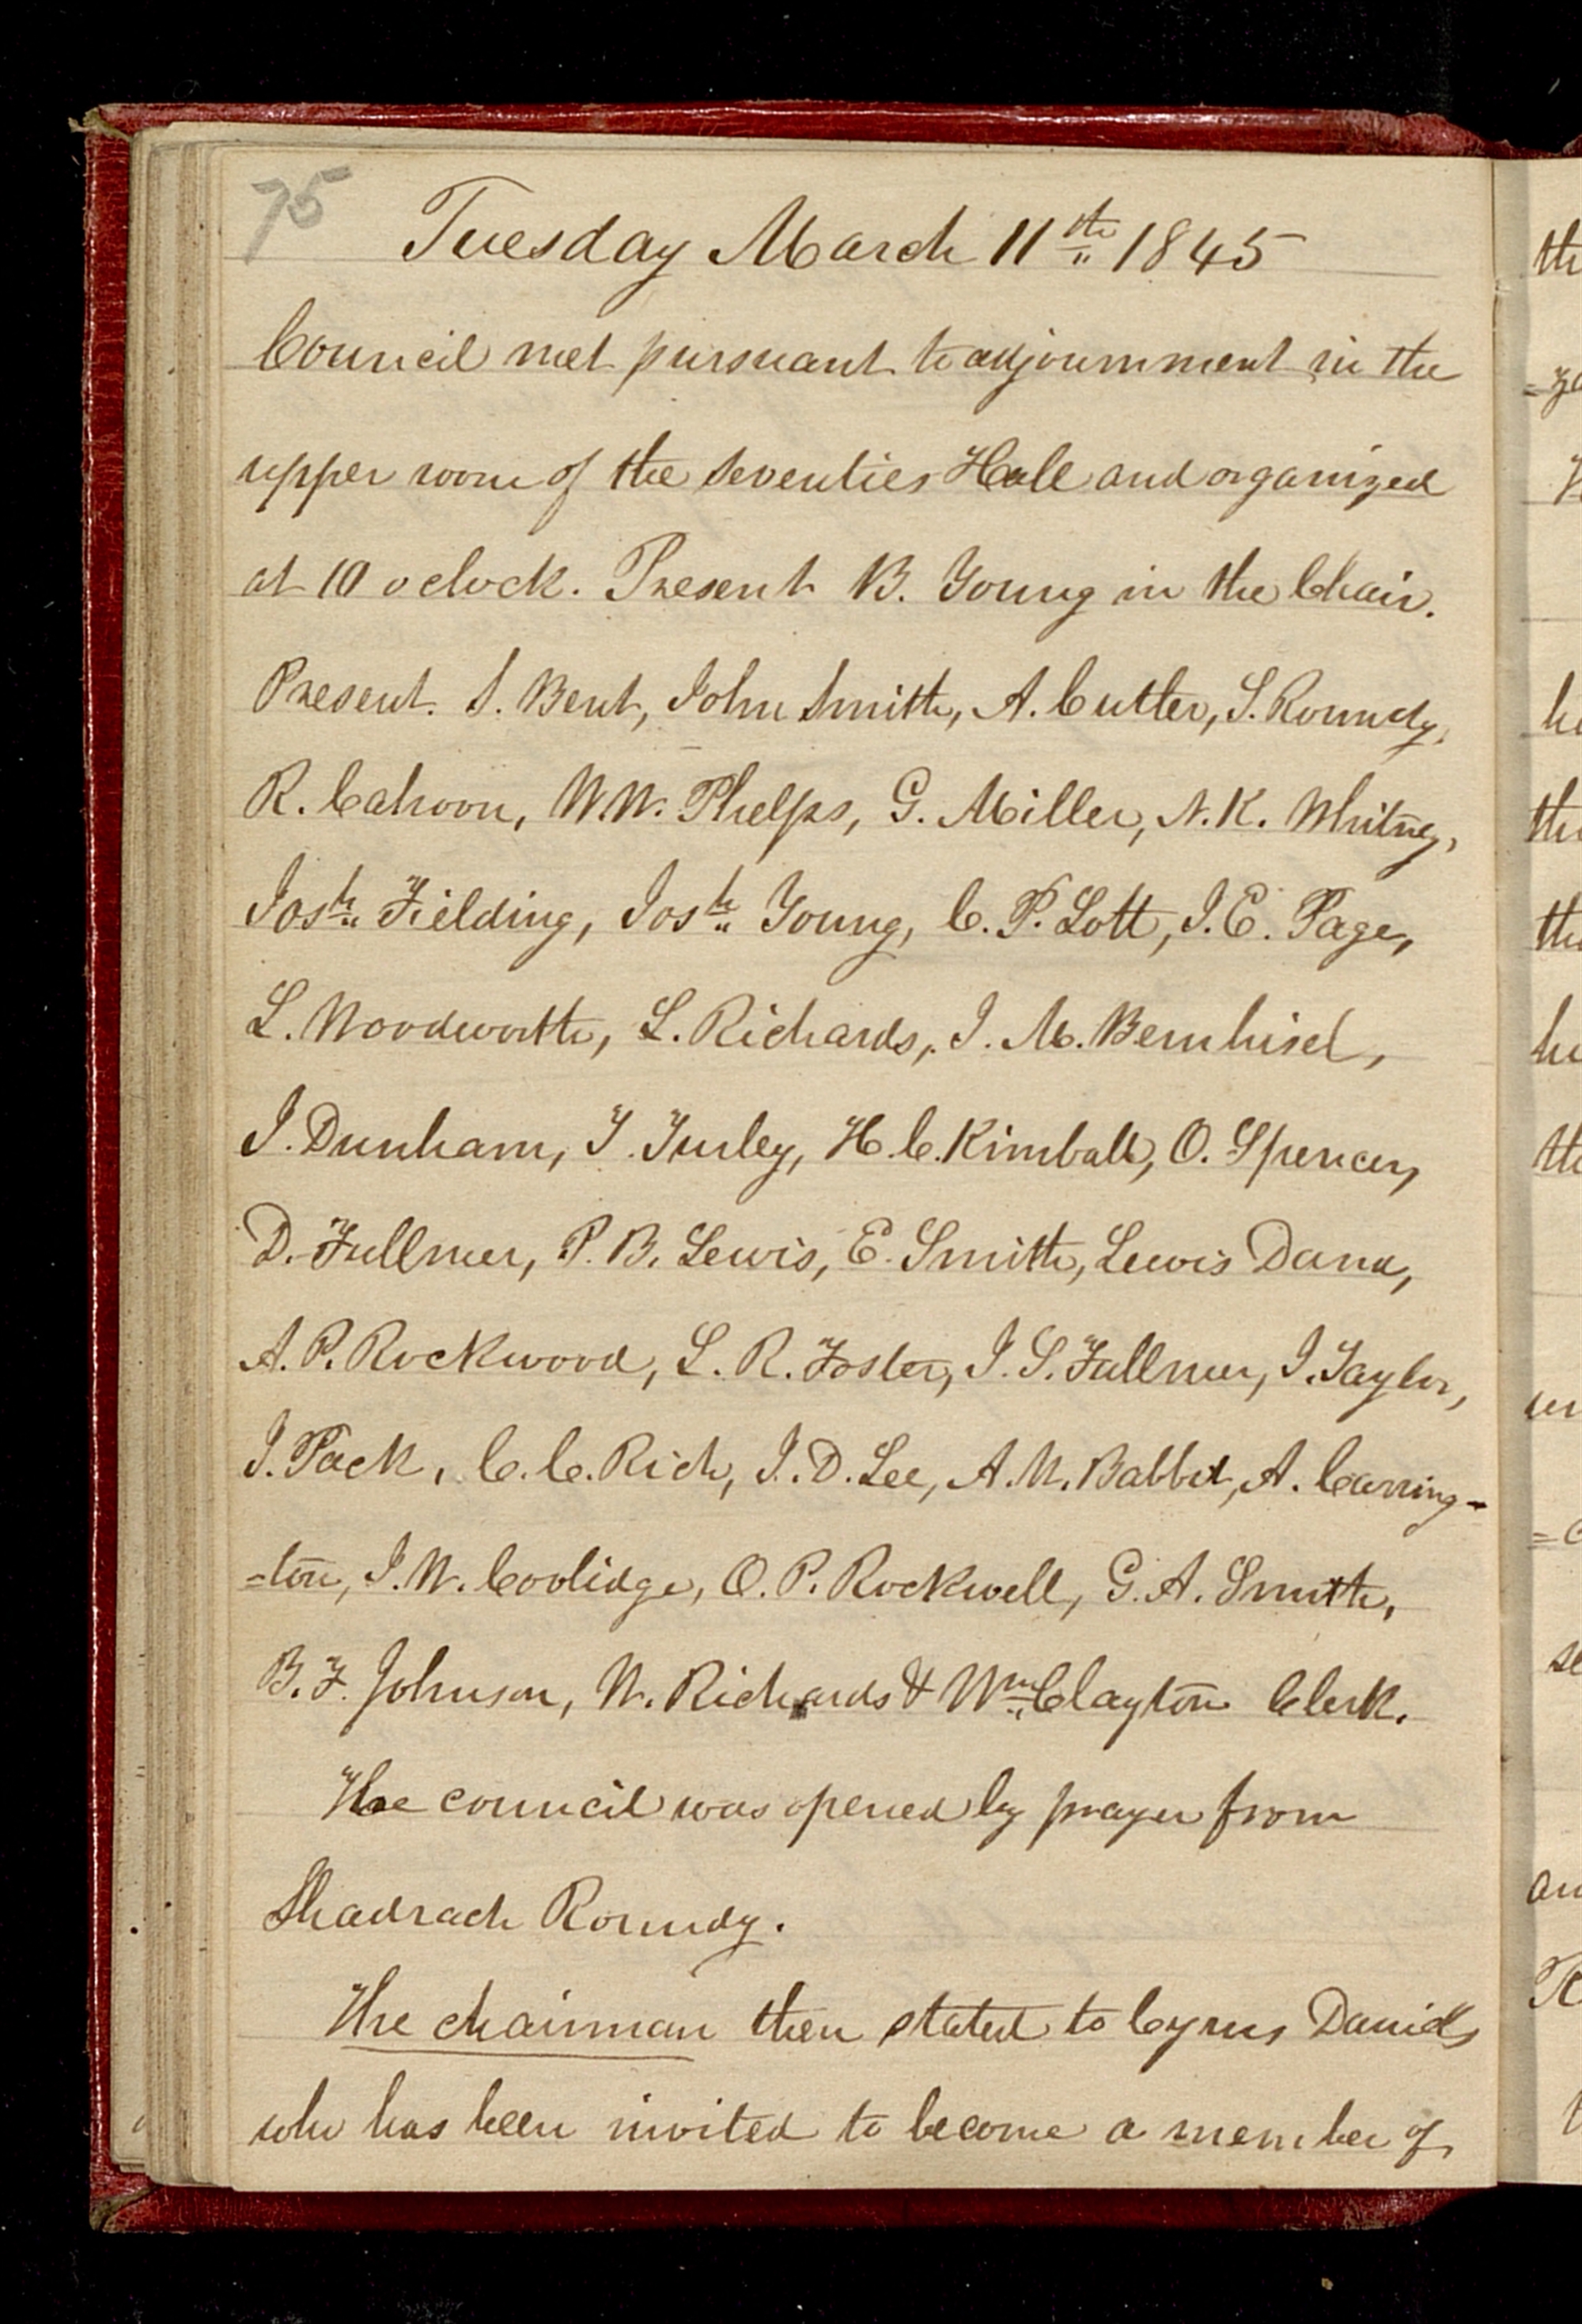 75
Tuesday March 11th 1845
Council met pursuant to adjournment in the
upper room of the Seventies Hall and organized
at 10 o clock. Present B. Young in the Chair.
Present. S. Bent, John Smith, A. Cutler, S. Roundy,
R. Cahoon, W.W. Phelps, G. Miller, N.K. Whitney,
Josh. Fielding, Josh. Young, C. P. Lott, J. E. Page,
L. Woodworth, L. Richards, J. M. Bernhisel,
J. Dunham, T. Turley, H. C. Kimball, O. Spencer,
D. Fullmer, P. B. Lewis, E. Smith, Lewis Dana,
A. P. Rockwood, L. R. Foster, J. S. Fullmer, J. Taylor,
J. Pack, C. C. Rich, J. D. Lee, A. W. Babbit, A. Carring-
=ton, J. W. Coolidge, O. P. Rockwell, G. A. Smith,
B. F. Johnson, W. Richards & Wm Clayton Clerk.
The council was opened by prayer from
Shadrach Roundy.
The chairman then stated to Cyrus Daniels
who has been invited to become a member of